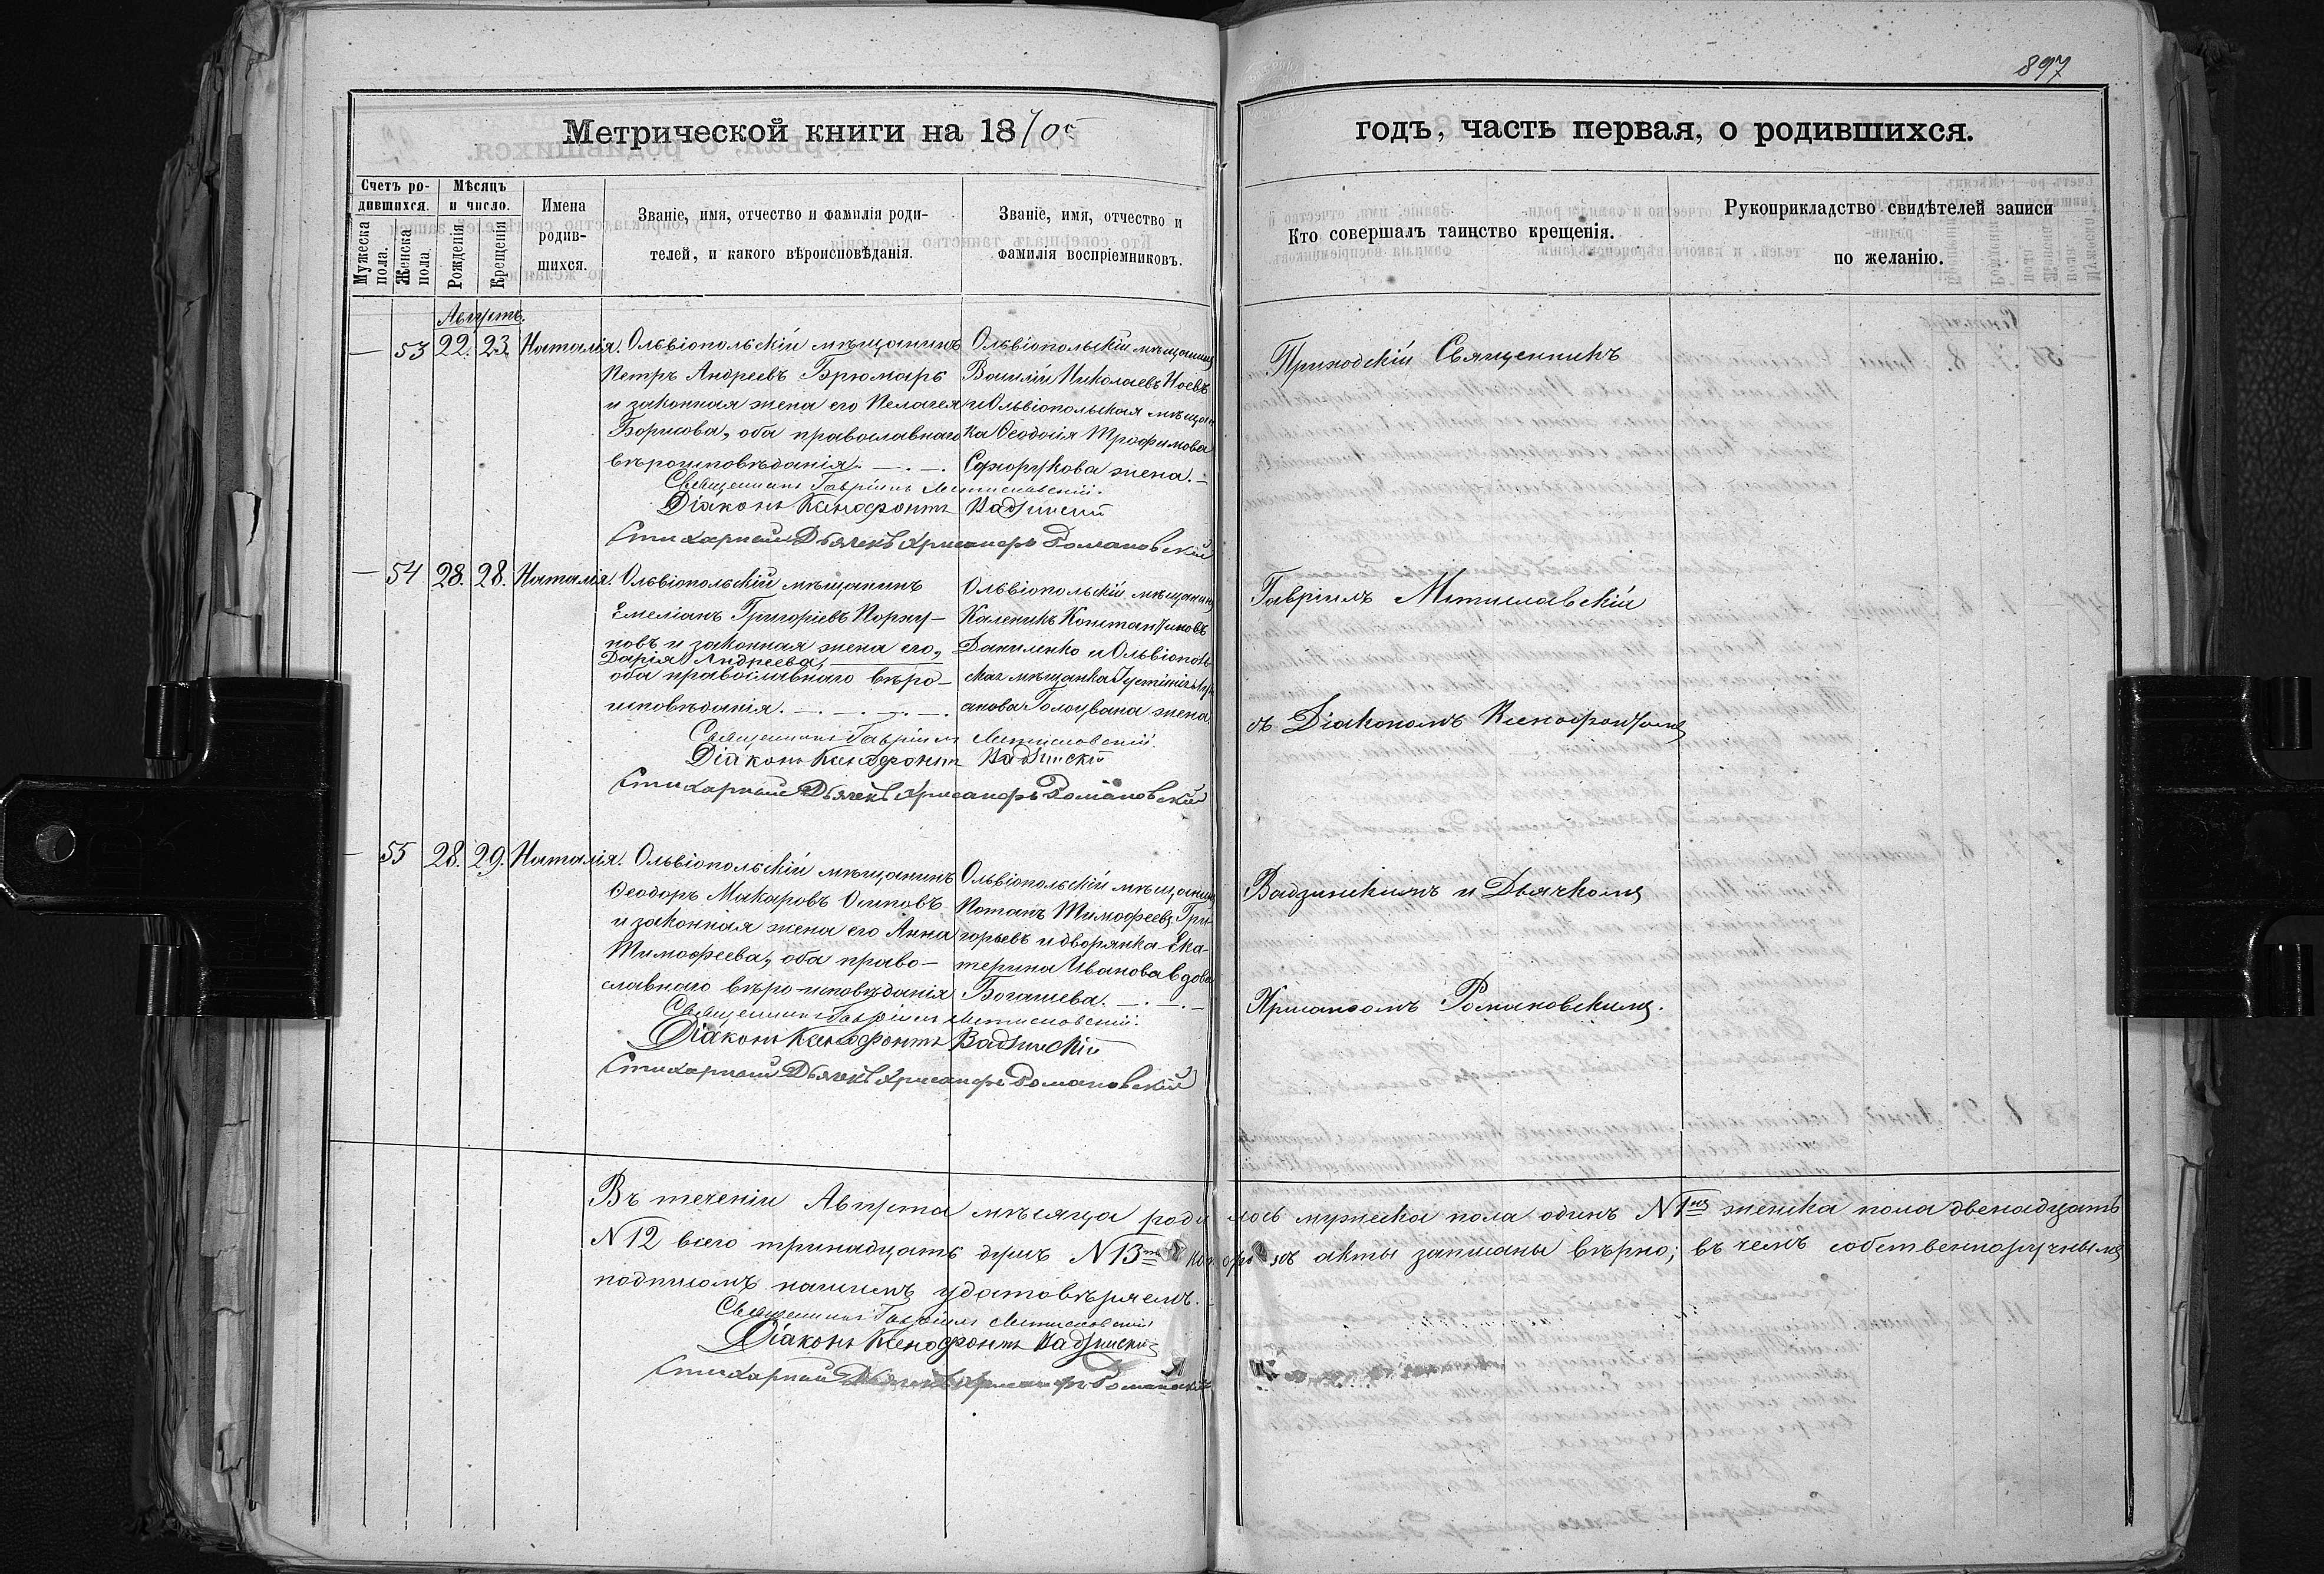 897
Метрической книги на 1870й
годъ, часть первая, о родившихся.
Счетъ родившихся.
Мужеска пола.
Женска пола.
Мѣсяцъ и число.
Рожденія.
Крещенія
Имена родившихся.
Званіе, имя, отчество и фамилія родителей, и какого вѣроисповѣданія.
Званіе, имя, отчество и фамилія воспріемниковъ.
Кто совершалъ таинство крещенія.
Рукоприкладство свидѣтелей записи по желанію.
Августъ.
— 53 22. 23. Наталія.
Ольвіопольскій мѣщанинъ
Петръ Андреевъ
и законная жена его Пелагея
Борисова, оба православнаго
вѣроисповѣданія. — . — .
Ольвіопольскій мѣщанинъ
Василій Николаевъ
и Ольвіопольская мѣщан
ка Ѳеодосія Трофимова
жена. —
Священникъ Гавріилъ Мстиславскій.
Діаконъ Ксенофонтъ Вадзинскій
Стихарный Дьячекъ Хрисанфъ Романовскій
— 54 28. 28. Наталія.
Ольвіопольскій мѣщанинъ
Емеліанъ Григоріевъ Коржу-
новъ и законная жена его,
Дарія Андреева,
оба православнаго вѣро-
исповѣданія. — . — . — . — .
Ольвіопольскій мѣщанинъ
Каленикъ Константиновъ
Даниленко и Ольвіополь
ская мѣщанка
жена.
Священникъ Гавріилъ Мстиславскій.
Діаконъ Ксенофонтъ Вадзинскій
Стихарный Дьячекъ Хрисанфъ Романовскій
— 55 28. 29. Наталія.
Ольвіопольскій мѣщанинъ
Ѳеодоръ Макаровъ Осиповъ
и законная жена его Анна
Тимофеева, оба право-
славнаго вѣро-исповѣданія
Ольвіопольскій мѣщанинъ
Потапъ Тимофеевъ Гри-
горьевъ и дворянка Ека-
терина Иванова вдова
Богашева. — . — . —
Священникъ Гавріилъ Мстиславскій.
Діаконъ Ксенофонтъ Вадзинскій
Стихарный Дьячекъ Хрисанфъ Романовскій
Приходскій Священникъ
Гавріилъ Мстиславскій
съ Діакономъ Ксенофонтомъ
Вадзинскимъ и Дьячкомъ
Хрисанфомъ Романовскимъ.
Въ теченіи Августа мѣсяца родилось мужеска пола одинъ N 1нъ женска пола двенадцать
N 12 всего тринадцать душъ N 13ть которыхъ акты записаны вѣрно; въ чемъ собственноручнымъ
подписомъ нашимъ удостовѣряемъ. —
Священникъ Гавріилъ Мстиславскій
Діаконъ Ксенофонтъ Вадзинскій
Стихарный Дьячекъ Хрисанфъ Романовскій